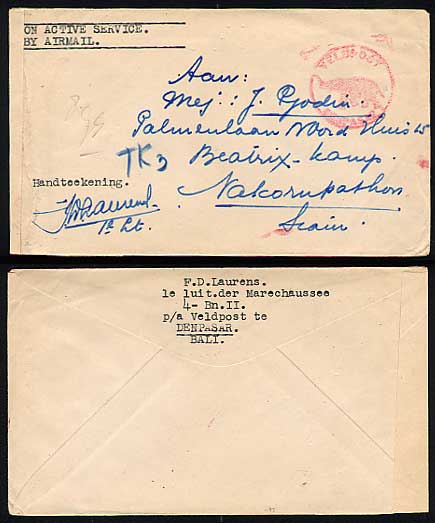 ON ACTIVE SERVICE.
BY AIRMAIL.
VELDPOST
Aan:
Mej: J. Pjodin.
Palmenlaan Noord Huis 15
TK3 Beatrix-kamp.
Handteekening.
Nakornpathon
FDLaurens.
1e Lt.
Siam.
F.D.Laurens.
1e luit.der Marechaussee
4- Bn.II.
p/a Veldpost te
DENPASAR.
BALI.